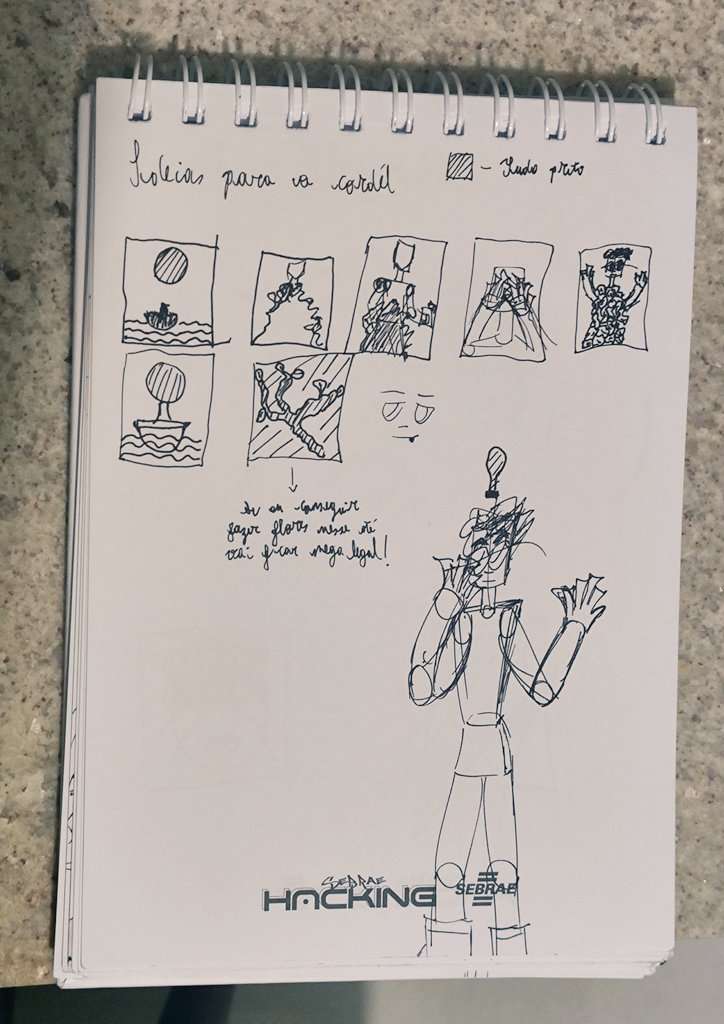 Ideias para o cordél
- Tudo preto
Se eu conseguir
fazer flores nesse até
vai ficar mega legal!
SEBRAE
HACKING
SEBRAE